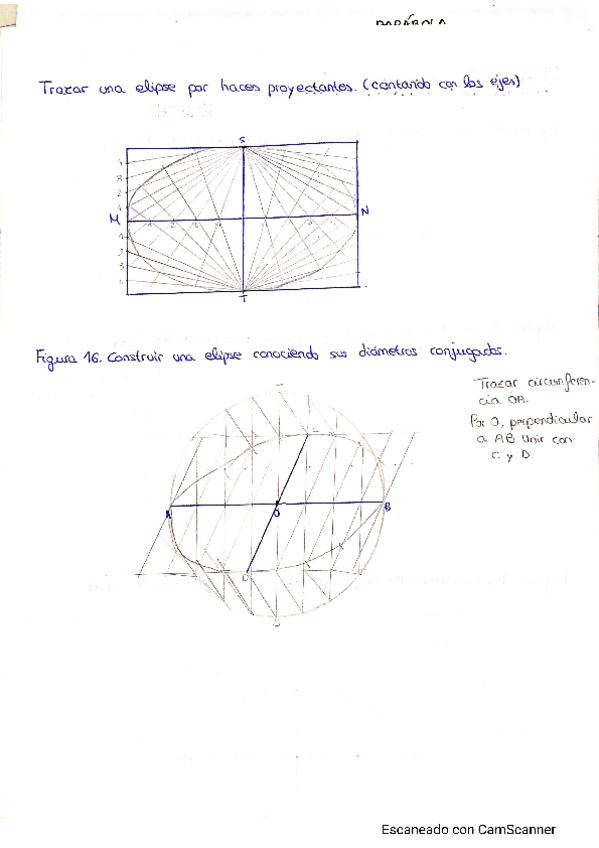 PARÁBOLA
Trazar una elipse por haces proyectantes. (contando con los ejes)
S
4
3
2
1
M
N
1 2 3 4
1
2
3
4
T
Figura 16. Construir una elipse conociendo sus diámetros conjugados.
Trazar circunferen-
cia OA.
Por O, perpendicular
a AB Unir con
C y D.
C
A
O
B
D
Escaneado con CamScanner